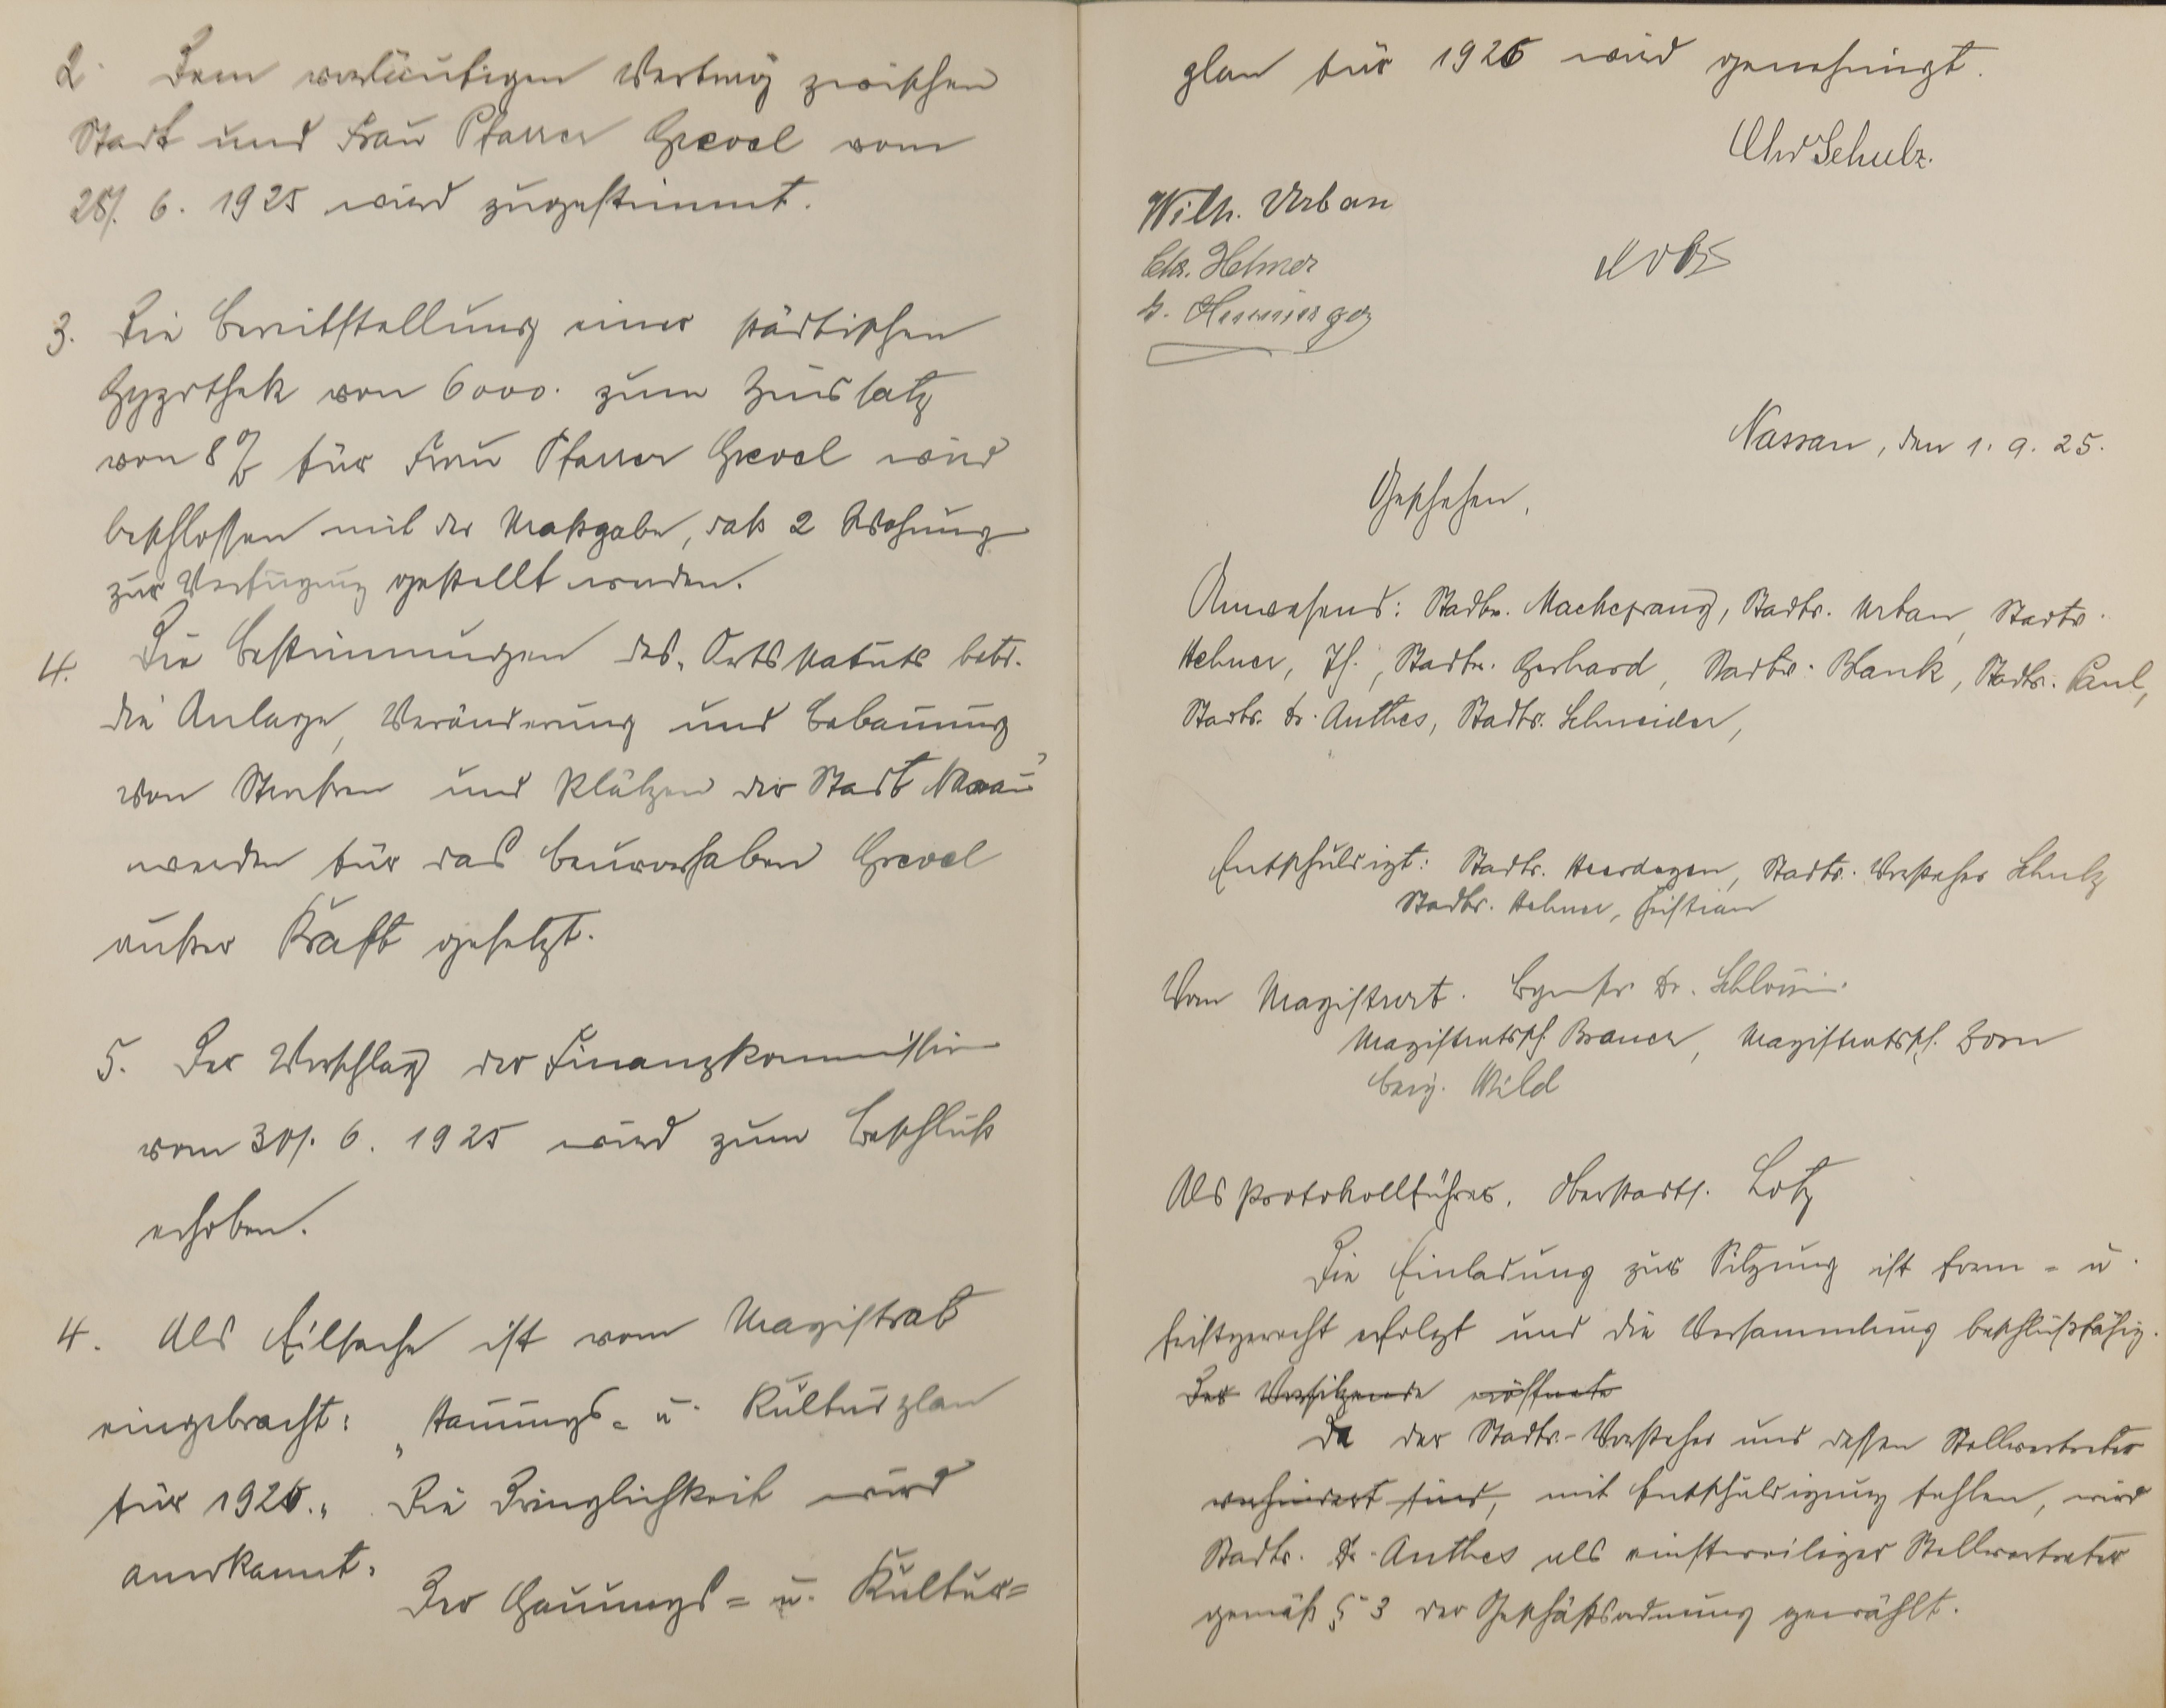 2. Dem vorläufigen Vertrag zwischen
Stadt und Frau Pfarrer Grevel vom
28/. 6. 1925 wird zugestimmt.
3. Die Bereitstellung einer städtischen
Hypothek von 6000. zum Zinssatz
von 8% für Frau Pfarrer Grevel wird
beschlossen mit der Maßgabe, daß 2 Wohnung
zur Verfügung gestellt werden.
4. Die Bestimmungen des Ortsstatuts betr.
die Anlage, Veränderung und Bebauung
von Straßen und Plätzen der Stadt Nassau
werden für das Bauvorhaben Grevel
außer Kraft gesetzt.
5. Der Vorschlag der Finanzkommission
vom 30/. 6. 1925 wird zum Beschluß
erhoben.
4. Als Eilsache ist vom Magistrat
eingebracht: „Hauungs- u. Kulturplan
für 1926.“ Die Dringlichkeit wird
anerkannt.
Der Hauungs- u. Kultur-
plan für 1926 wird genehmigt.
Chr Schulz.
Wilh. Urban
Chr. Hehner
Nassau, den 1. 9. 25.
Geschehen.
Anwesend: Stadtv. Macheprang, Stadtv. Urban, Stadtv.
Hehner, Th., Stadtv. Gerhard, Stadtv. Blank, Stadtv. Paul,
Stadtv. Dr. Anthes, Stadtv. Schneider,
Entschuldigt: Stadtv. Heerdegen, Stadtv. Vorsteher Schulz
Stadtv. Hehner, Christian
Vom Magistrat. Bgmstr. Dr.
Magistratssch. Brauer, Magistratssch. Born
Beig. Wild
Als Protokollführer. Oberstadts. Lotz
Die Einladung zur Sitzung ist form- u.
fristgerecht erfolgt und die Versammlung beschlußfähig.
Der Vorsitzende eröffnete
Da der Stadtv.-Vorsteher und dessen Stellvertreter
verhindert sind, mit Entschuldigung fehlen, wird
Stadtv. Dr. Anthes als einstweiliger Stellvertreter
gemäß § 3 der Geschäftsordnung gewählt.